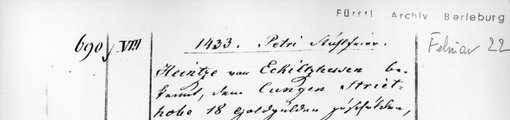 Fürstl Archiv Berleburg
690 VIII 1433. Petri Stuhlfeier. Februar 22
Heintze von Eckiltzhusen be-
kennt, dem Cungen Striet-
hobe 18 Goldgulden zuschulden,